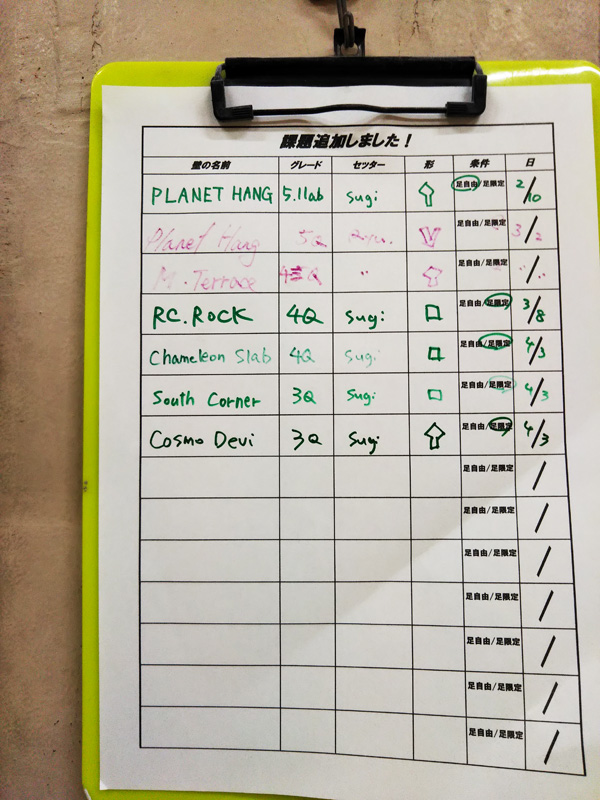 課題追加しました!
壁の名前 グレード セッター 形 条件 日
PLANET HANG 5.11ab sugi 足自由/足限定 2/10
Planet Hang 5Q Ryu. 足自由/足限定 3/2
M. Terrace 4Q " 足自由/足限定 "/"
RC. ROCK 4Q sugi 足自由/足限定 3/8
Chameleon Slab 4Q sugi 足自由/足限定 4/3
South Corner 3Q sugi 足自由/足限定 4/3
Cosmo Devi 3Q sugi 足自由/足限定 4/3
足自由/足限定 /
足自由/足限定 /
足自由/足限定 /
足自由/足限定 /
足自由/足限定 /
足自由/足限定 /
足自由/足限定 /